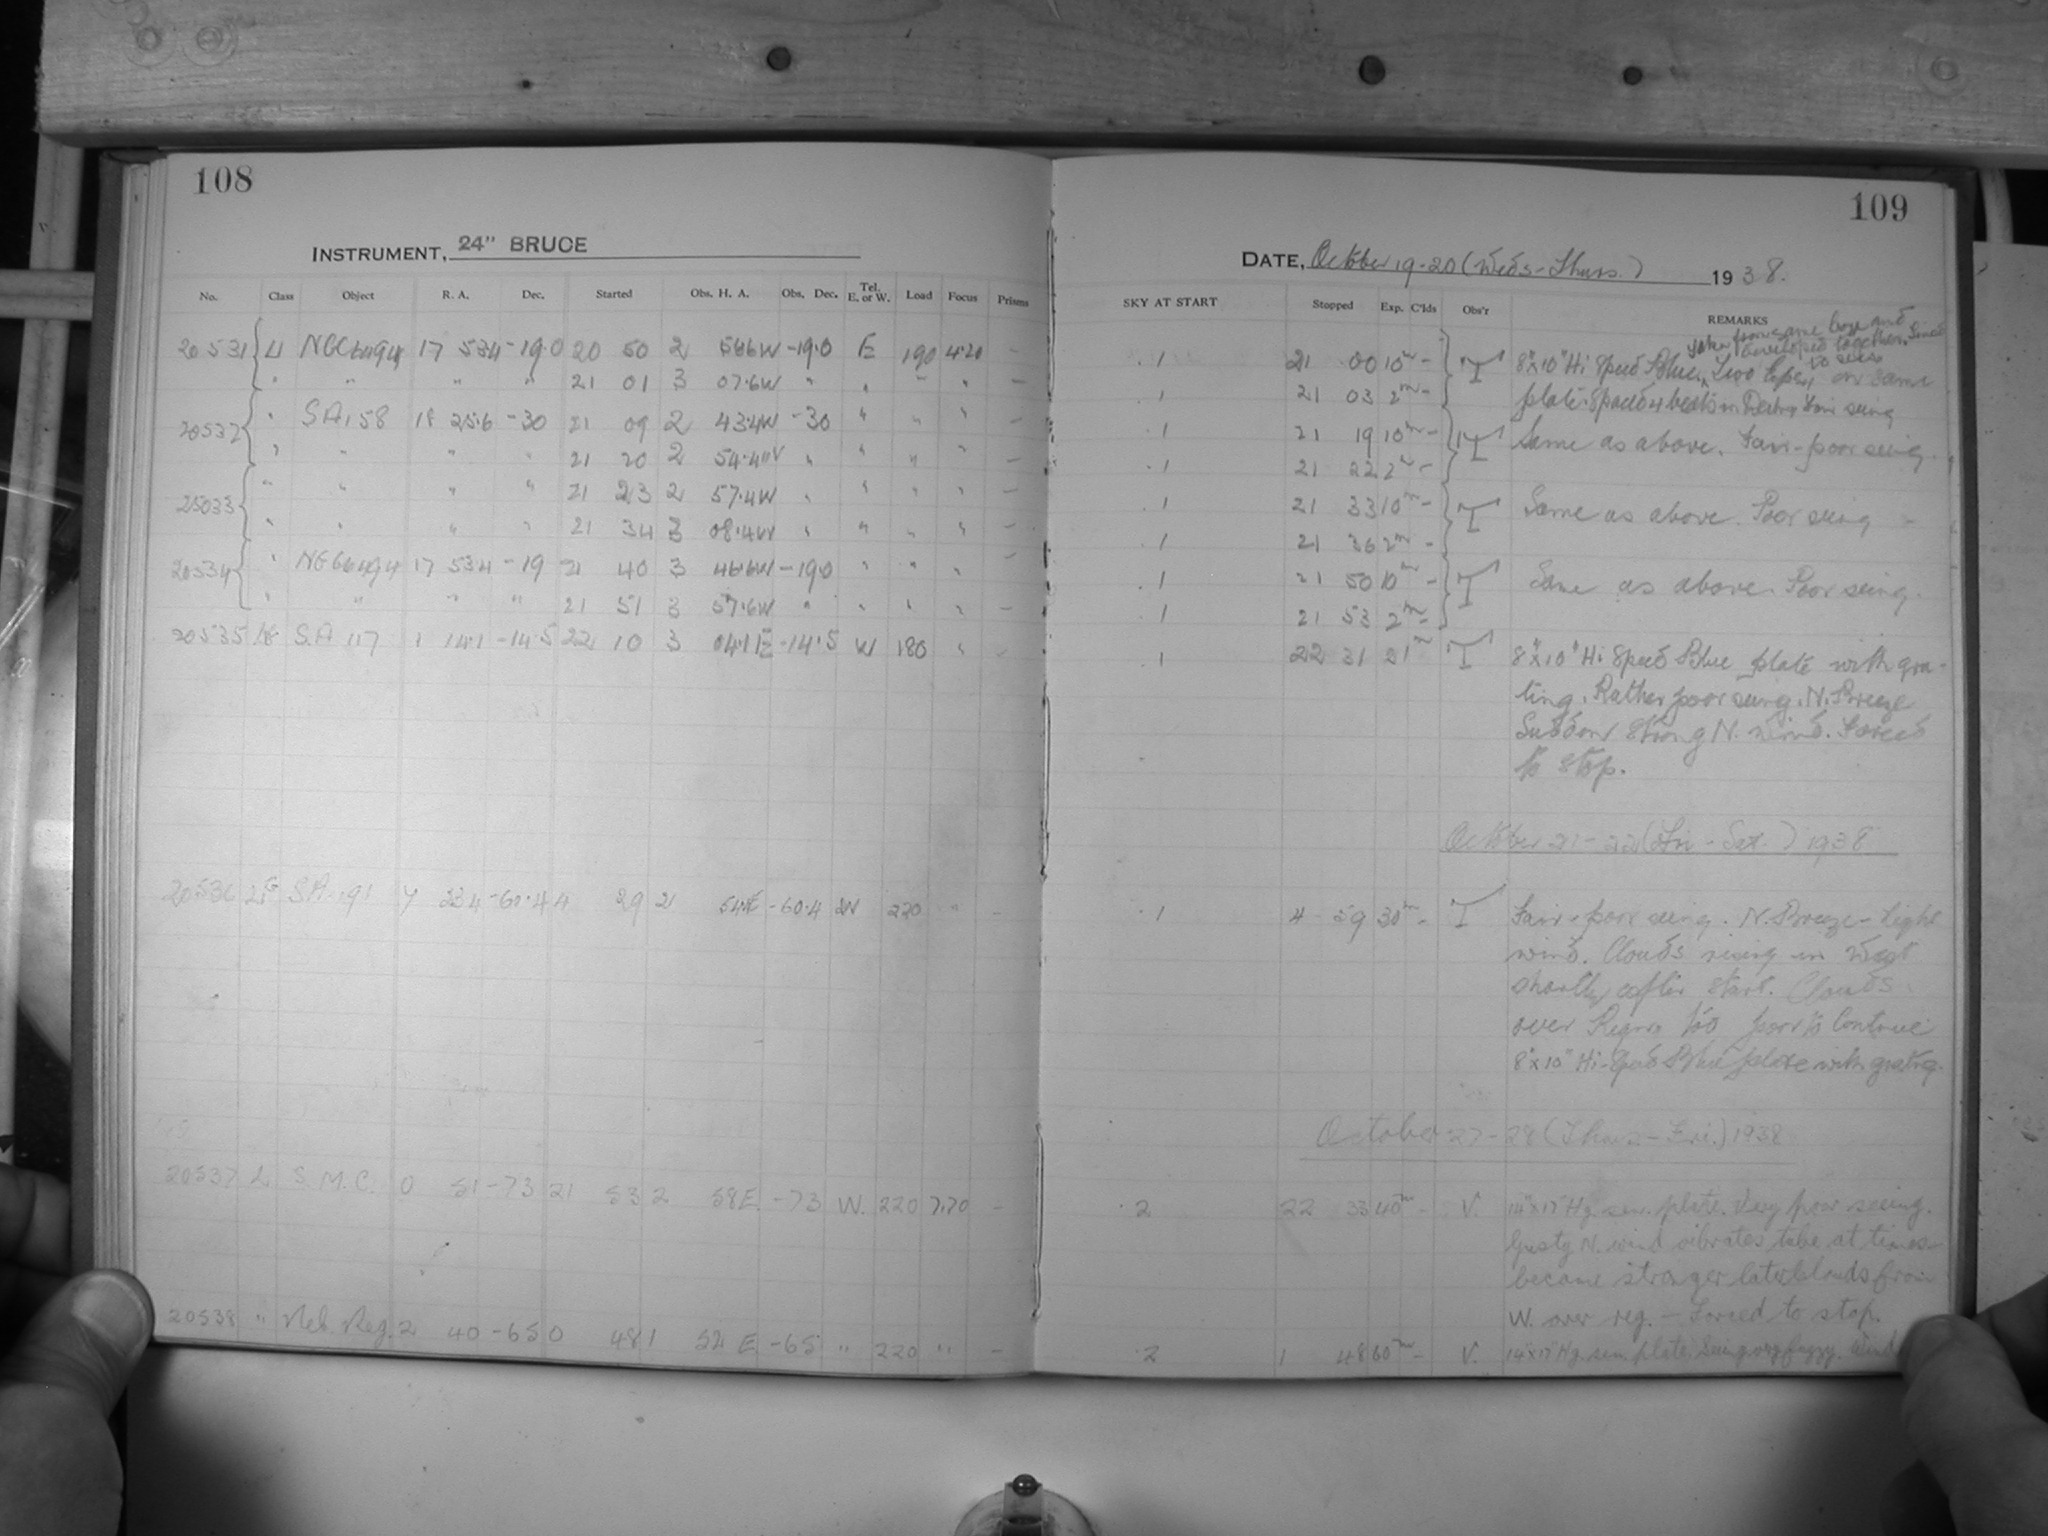 108
INSTRUMENT, 24" BRUCE
No. Class Object R. A. Dec. Started Obs. H. A. Obs. Dec. Tel. E. or W. Load Focus Prisms
20531 NGC6494 17 534 -19.0 20 50 2 566W -19.0 E 190 4.20 -
" " " " 21 01 3 07.6W " " " " -
20532 " SA158 18 25.6 -30 21 09 2 434W -30 " " "
" " " " 21 20 2 54.4W " " " " -
25033 " " " " 21 23 2 57.4W " " " " -
" " " " 21 34 3 08.4W " " " " -
20534 " NGC6494 17 534 -19 21 40 3 46.6W -19.0 " " " -
" " " " 21 51 3 57.6W " " " " -
20535 S.A 117 1 14.1 -14.5 22 10 3 04.1E -14.5 W 180 " -
20536 SA 191 4 234 -60.4 4 29 2 54E -60.4 W 220 " -
20537 L S.M.C. 0 51 -73 21 53 2 58E -73 W. 220 7.20 -
20538 " Neb Reg. 2 40 -65 0 48 1 52 E -65 " 220 " -
109
DATE, October 19-20 (Weds-Thurs.) 1938.
SKY AT START Stopped Exp. C'lds Obs'r REMARKS
taken from same box and
developed together.
.1 21 00 10m - T 8"x10" Hi Speed Blue, Two Exps, on same
.1 21 03 2m - plate. fair seeing
.1 21 19 10m - T Same as above. Fair-poor seeing.
.1 21 22 2m -
.1 21 33 10m - T Same as above. Poor seeing
.1 21 36 2m -
.1 21 50 10m - T Same as above. Poor seeing.
.1 21 53 2m -
.1 22 31 21m T 8"x10" Hi Speed Blue plate with gra-
ting. Rather poor seeing. N. Breeze
Sudden strong N. wind. Forced
to stop.
October 21-22 (Fri-Sat.) 1938
.1 4 59 30m - T Fair-poor seeing. N. Breeze-light
wind. Clouds rising in West
shortly after start. Clouds
over Region too poor to Continue
8"x10" Hi-Speed Blue plate with grating.
October 27-28 (Thurs-Fri.) 1938
.2 22 33 40m - V. 14"x17" Hg. sen. plate. Very poor seeing.
Gusty N. wind vibrates tube at times-
became stronger later. Clouds from
W. over reg. - Forced to stop.
.2 1 48 60m - V. 14"x17" Hg. sen. plate. Seeing very fuzzy. Wind